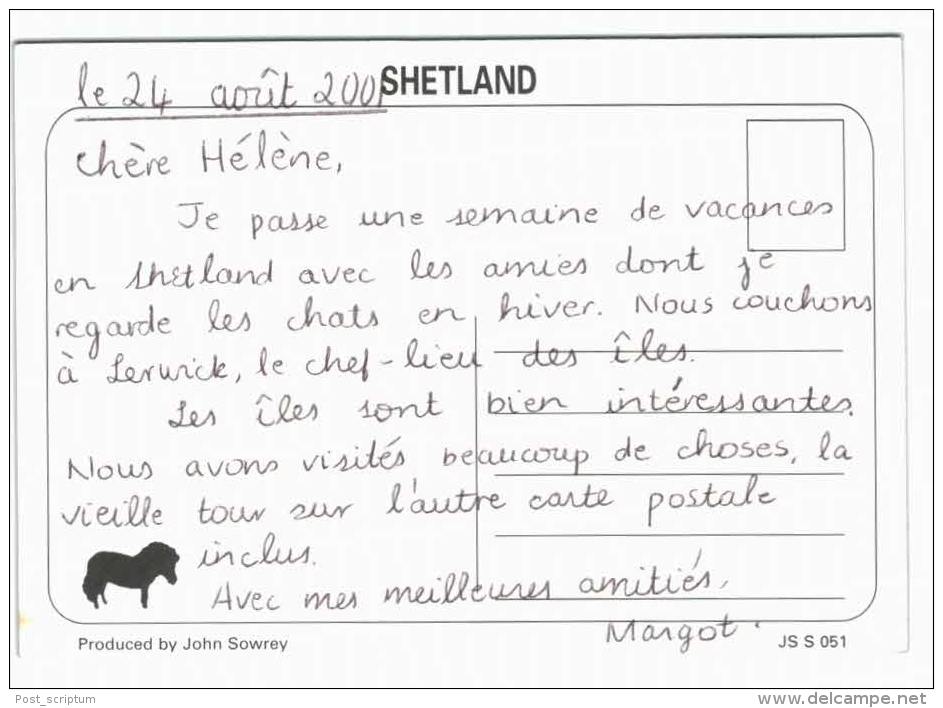 le 24 août 2001
SHETLAND
Chère Hélène,
Je passe une semaine de vacances
en Shetland avec les amies dont je
regarde les chats en hiver. Nous couchons
à Lerwick, le chef-lieu des îles.
Les îles sont bien intéressantes.
Nous avons visités beaucoup de choses, la
vieille tour sur l'autre carte postale
inclus.
Avec mes meilleures amitiés,
Margot.
Produced by John Sowrey
JS S 051
Post_scriptum
www.delcampe.net